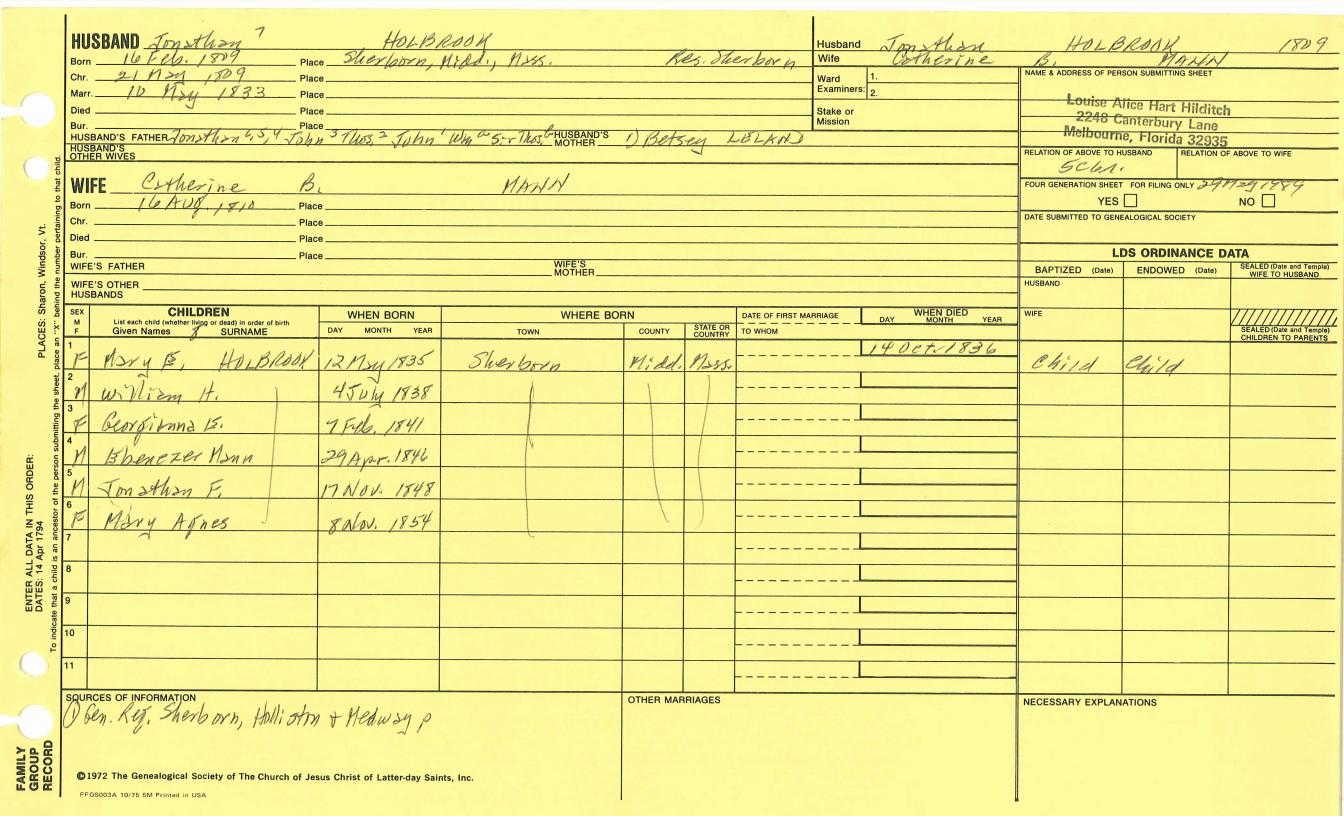 HUSBAND Jonathan 7 HOLBROOK
Born 16 Feb. 1809 Place Sherborn, Midd., Mass. Res. Sherborn
Chr. 21 May 1809 Place
Marr. 10 May 1833 Place
Died Place
Bur. Place
HUSBAND'S FATHER Jonathan 6,5,4 John 3 Thos. 2 John 1 Wm HUSBAND'S MOTHER 1) Betsey LELAND
HUSBAND'S OTHER WIVES
WIFE Catherine B. MANN
Born 16 AUG. 1810 Place
Chr. Place
Died Place
Bur. Place
WIFE'S FATHER WIFE'S MOTHER
WIFE'S OTHER HUSBANDS
Husband Jonathan HOLBROOK 1809
Wife Catherine B. MANN
Ward Examiners: 1.
2.
Stake or Mission
NAME & ADDRESS OF PERSON SUBMITTING SHEET
Louise Alice Hart Hilditch
2248 Canterbury Lane
Melbourne, Florida 32935
RELATION OF ABOVE TO HUSBAND RELATION OF ABOVE TO WIFE
FOUR GENERATION SHEET FOR FILING ONLY 29 May 1989
YES NO
DATE SUBMITTED TO GENEALOGICAL SOCIETY
LDS ORDINANCE DATA
BAPTIZED (Date) ENDOWED (Date) SEALED (Date and Temple) WIFE TO HUSBAND
HUSBAND
WIFE
SEALED (Date and Temple) CHILDREN TO PARENTS
SEX M F CHILDREN List each child (whether living or dead) in order of birth Given Names SURNAME WHEN BORN DAY MONTH YEAR WHERE BORN TOWN COUNTY STATE OR COUNTRY DATE OF FIRST MARRIAGE TO WHOM WHEN DIED DAY MONTH YEAR
1 F Mary E. HOLBROOK 12 May 1835 Sherborn Midd. Mass. 14 Oct. 1836 Child Child
2 M William H. 4 July 1838
3 F Georgianna E. 7 Feb. 1841
4 M Ebenezer Mann 29 Apr. 1846
5 M Jonathan F. 17 Nov. 1848
6 F Mary Agnes 8 Nov. 1854
7
8
9
10
11
SOURCES OF INFORMATION
1 Gen. Reg. Sherborn, Holliston & Medway p
OTHER MARRIAGES
NECESSARY EXPLANATIONS
©1972 The Genealogical Society of The Church of Jesus Christ of Latter-day Saints, Inc.
FFGS003A 10/75 5M Printed in USA
FAMILY GROUP RECORD
ENTER ALL DATA IN THIS ORDER:
DATES: 14 Apr 1794 PLACES: Sharon, Windsor, Vt.
To indicate that a child is an ancestor of the person submitting the sheet, place an "X" behind the number pertaining to that child.